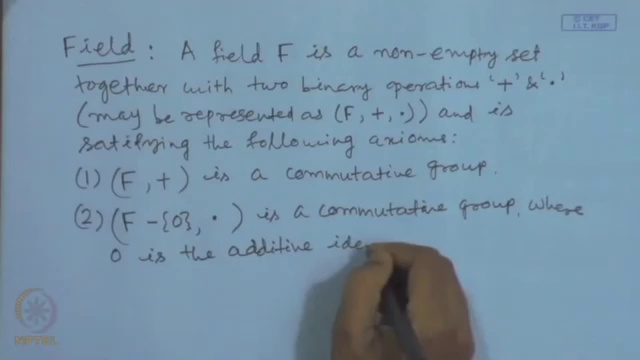 © CET
I.I.T. KGP
Field : A field F is a non-empty set
together with two binary operations '+' & '·'
(may be represented as (F, +, ·)) and is
satisfying the following axioms:
(1) (F, +) is a commutative group.
(2) (F - {0}, ·) is a commutative group, where
0 is the additive ide
NPTEL